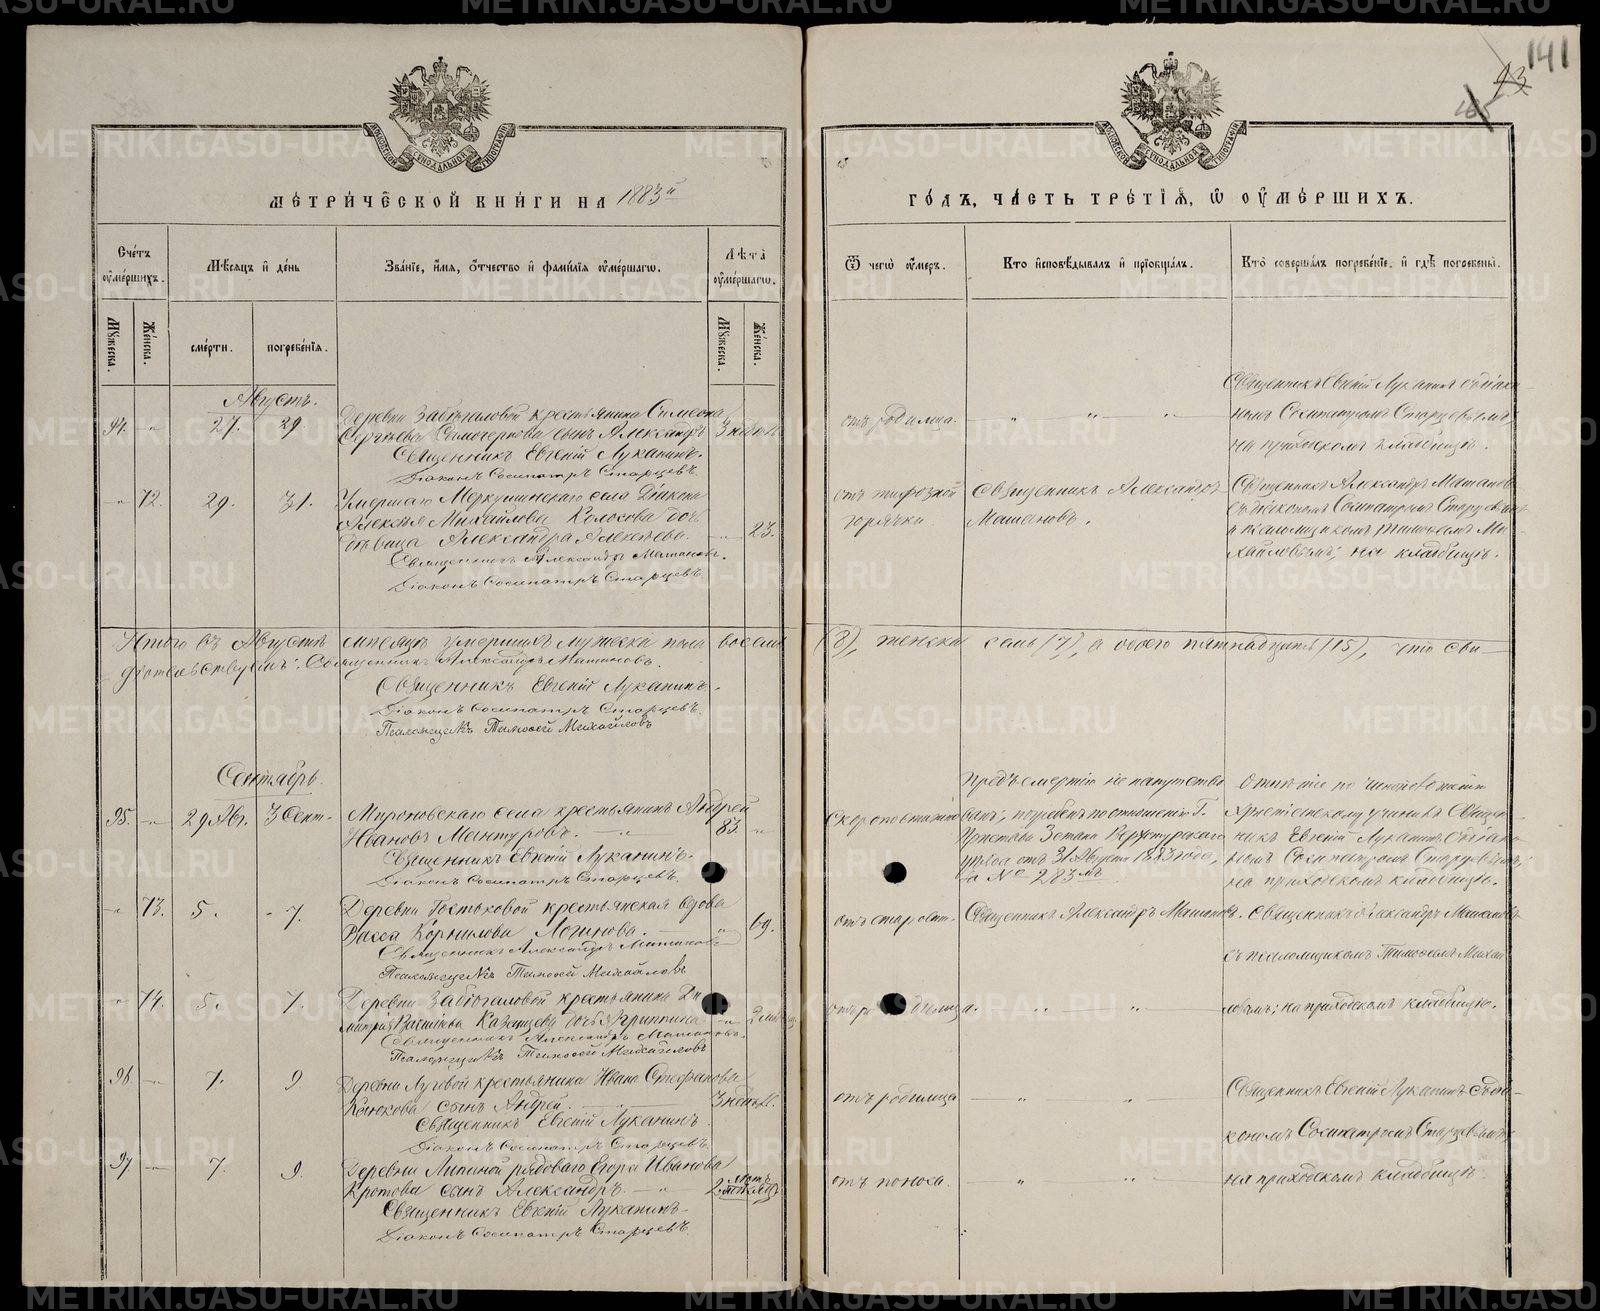 141
93
165
МЕТРИЧЕСКОЙ КНИГИ НА 1883й
ГОДЪ, ЧАСТЬ ТРЕТІЯ, Ѡ ОУМЕРШИХЪ.
Счетъ оумершихъ.
Мѣсяцъ и день
Званіе, имя, отчество и фамилія оумершагѡ.
Лѣта оумершагѡ.
Ѿ чегѡ оумеръ.
Кто исповѣдывалъ и пріобщалъ.
Кто совершалъ погребеніе, и гдѣ погребены.
Мужеска.
Женска.
смерти.
погребенія.
Мужеска.
Женска.
Августъ.
94. " 27. 29
Деревни Забѣгаловой крестьянина Симеона
Сергѣева Самочернова сынъ Александръ 3 нед.
Священникъ Евгеній Луканинъ.
Діаконъ Сосипатръ Старцевъ.
отъ родимца. " " "
Священникъ Евгеній Луканинъ съ діако-
номъ Сосипатромъ Старцевымъ,
на приходскомъ кладбищѣ.
" 72. 29. 31.
Умершаго Меркушинскаго села Діакона
Алексія Михайлова Колосова дочь
дѣвица Александра Алексѣева. " 23.
Священникъ Александръ Матановъ.
Діаконъ Сосипатръ Старцевъ
отъ тифозной
горячки
Священникъ Александръ
Матановъ.
Священникъ Александръ Матановъ
съ діакономъ Сосипатромъ Старцевымъ
и псаломщикомъ Тимоѳеемъ Ми-
хайловымъ; на кладбищѣ.
Итого въ Августѣ мѣсяцѣ умершихъ мужеска пола восемь (8), женска семь (7), а обоего пятнадцать (15), что сви-
дѣтельствуемъ: Священникъ Александръ Матановъ.
Священникъ Евгеній Луканинъ.
Діаконъ Сосипатръ Старцевъ.
Псаломщикъ Тимоѳей Михайловъ
Сентябрь.
95. " 29 Авг. 3 Сент.
Мироновскаго села крестьянинъ Андрей
Ивановъ Ментуровъ. " 83. "
Священникъ Евгеній Луканинъ.
Діаконъ Сосипатръ Старцевъ.
Скоропостижно
Предъ смертію не напутство
ванъ; погребенъ по отношенію Г.
Пристава 3 стана Верхотурскаго
уѣзда отъ 31 Августа 1883 года,
за № 283мъ
Отпѣтіе по чиноположенію
Христіанскому учинилъ Священ-
никъ Евгеній Луканинъ, съ діако-
номъ Сосипатромъ Старцевымъ;
на приходскомъ кладбищѣ.
" 73. 5. 7.
Деревни Гостьковой крестьянская вдова
Васса Корнилова Логинова. " 69.
Священникъ Александръ Матановъ
Псаломщикъ Тимоѳей Михайловъ
отъ старости.
Священникъ Александръ Матановъ.
Священникъ Александръ Матановъ
съ псаломщикомъ Тимоѳеемъ Михай
ловымъ; на приходскомъ кладбищѣ.
" 74. 5. 7.
Деревни Забѣгаловой крестьянина Ди
митрія Васильева Казанцева дочь Агриппина "
Священникъ Александръ Матановъ.
Псаломщикъ Тимоѳей Михайловъ
отъ родимца. " " "
96. " 7. 9
Деревни Луговой крестьянина Ивана Стефанова
Конюкова сынъ Андрей. 3 нед.
Священникъ Евгеній Луканинъ.
Діаконъ Сосипатръ Старцевъ.
отъ родимца " "
Священникъ Евгеній Луканинъ съ діа-
кономъ Сосипатромъ Старцевымъ;
на приходскомъ кладбищѣ.
97 7. 9.
Деревни Липиной рядоваго Егора Иванова
Кротова сынъ Александръ. "
Священникъ Евгеній Луканинъ
Діаконъ Сосипатръ Старцевъ.
отъ поноса. " "
METRIKI.GASO-URAL.RU